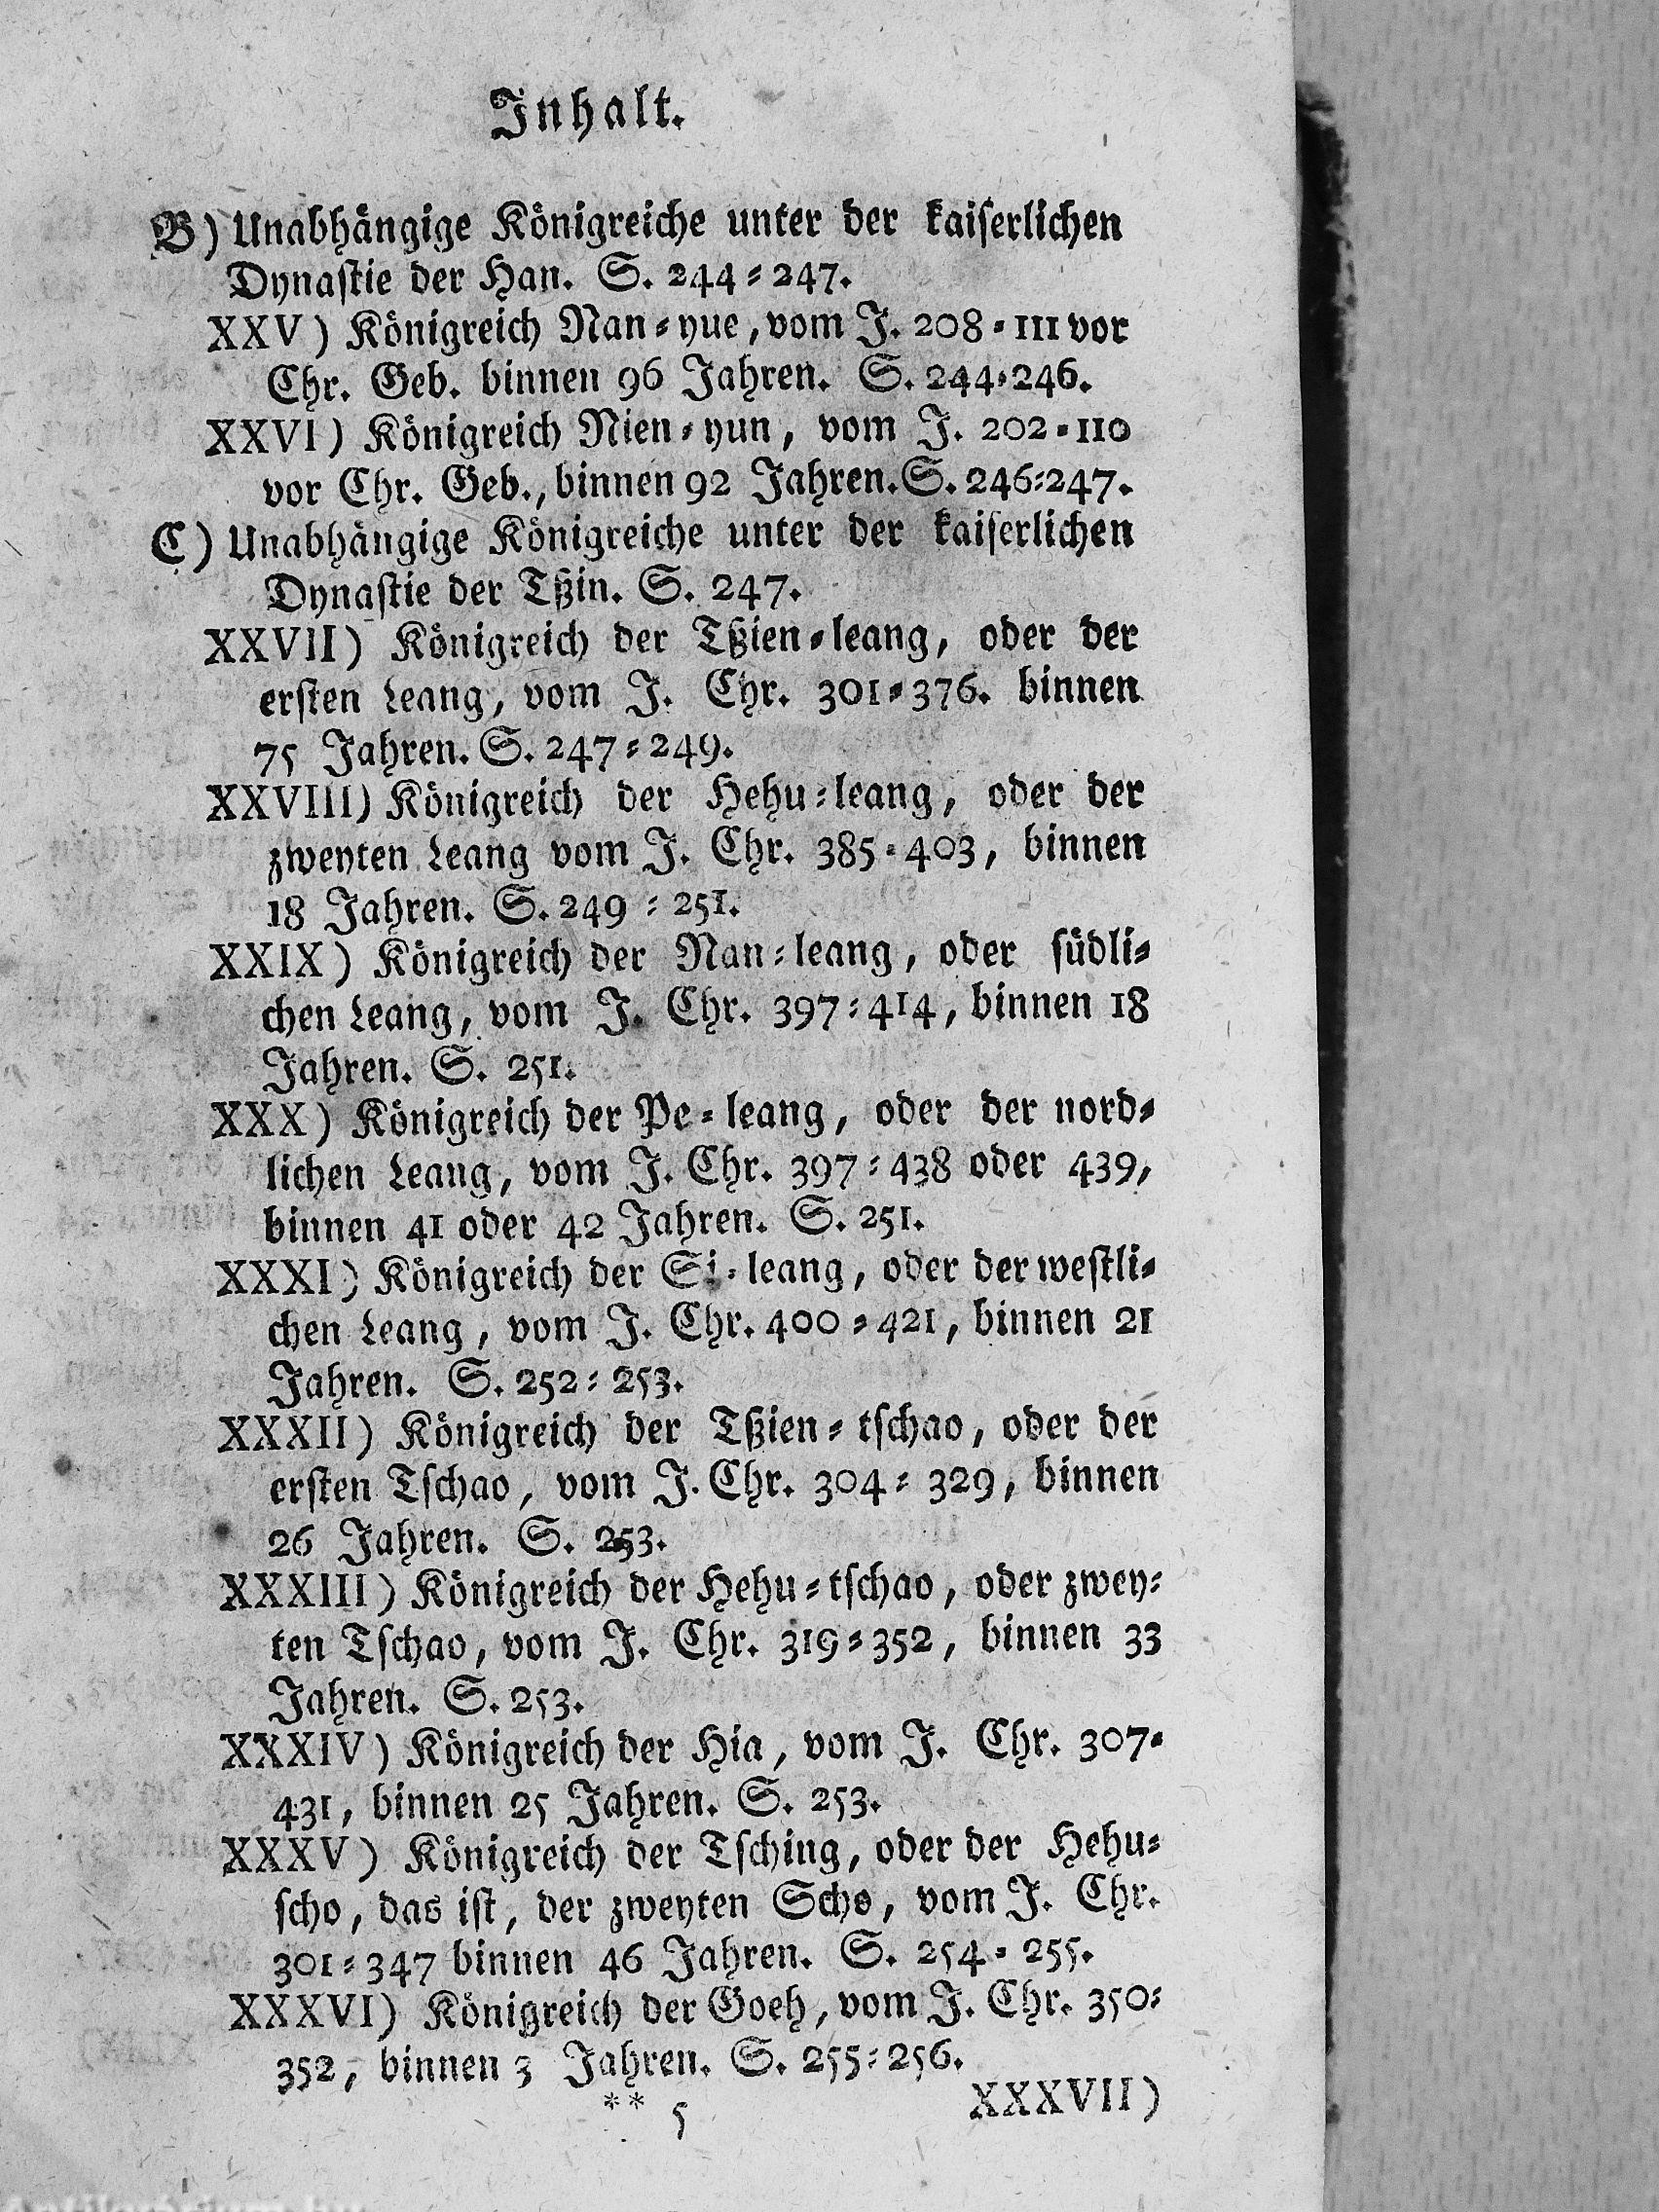 Inhalt.
B) Unabhängige Königreiche unter der kaiserlichen
Dynastie der Han. S. 244=247.
XXV) Königreich Nan=yue, vom J. 208=111 vor
Chr. Geb. binnen 96 Jahren. S. 244=246.
XXVI) Königreich Nien=yun, vom J. 202=110
vor Chr. Geb., binnen 92 Jahren. S. 246=247.
C) Unabhängige Königreiche unter der kaiserlichen
Dynastie der Tßin. S. 247.
XXVII) Königreich der Tßien=leang, oder der
ersten Leang, vom J. Chr. 301=376. binnen
75 Jahren. S. 247=249.
XXVIII) Königreich der Hehu=leang, oder der
zweyten Leang vom J. Chr. 385=403, binnen
18 Jahren. S. 249=251.
XXIX) Königreich der Nan=leang, oder südli=
chen Leang, vom J. Chr. 397=414, binnen 18
Jahren. S. 251.
XXX) Königreich der Pe=leang, oder der nord=
lichen Leang, vom J. Chr. 397=438 oder 439,
binnen 41 oder 42 Jahren. S. 251.
XXXI) Königreich der Si=leang, oder der westli=
chen Leang, vom J. Chr. 400=421, binnen 21
Jahren. S. 252=253.
XXXII) Königreich der Tßien=tschao, oder der
ersten Tschao, vom J. Chr. 304=329, binnen
26 Jahren. S. 253.
XXXIII) Königreich der Hehu=tschao, oder zwey=
ten Tschao, vom J. Chr. 319=352, binnen 33
Jahren. S. 253.
XXXIV) Königreich der Hia, vom J. Chr. 307=
431, binnen 25 Jahren. S. 253.
XXXV) Königreich der Tsching, oder der Hehu=
scho, das ist, der zweyten Scho, vom J. Chr.
301=347 binnen 46 Jahren. S. 254=255.
XXXVI) Königreich der Goeh, vom J. Chr. 350=
352, binnen 3 Jahren. S. 255=256.
** 5 XXXVII)